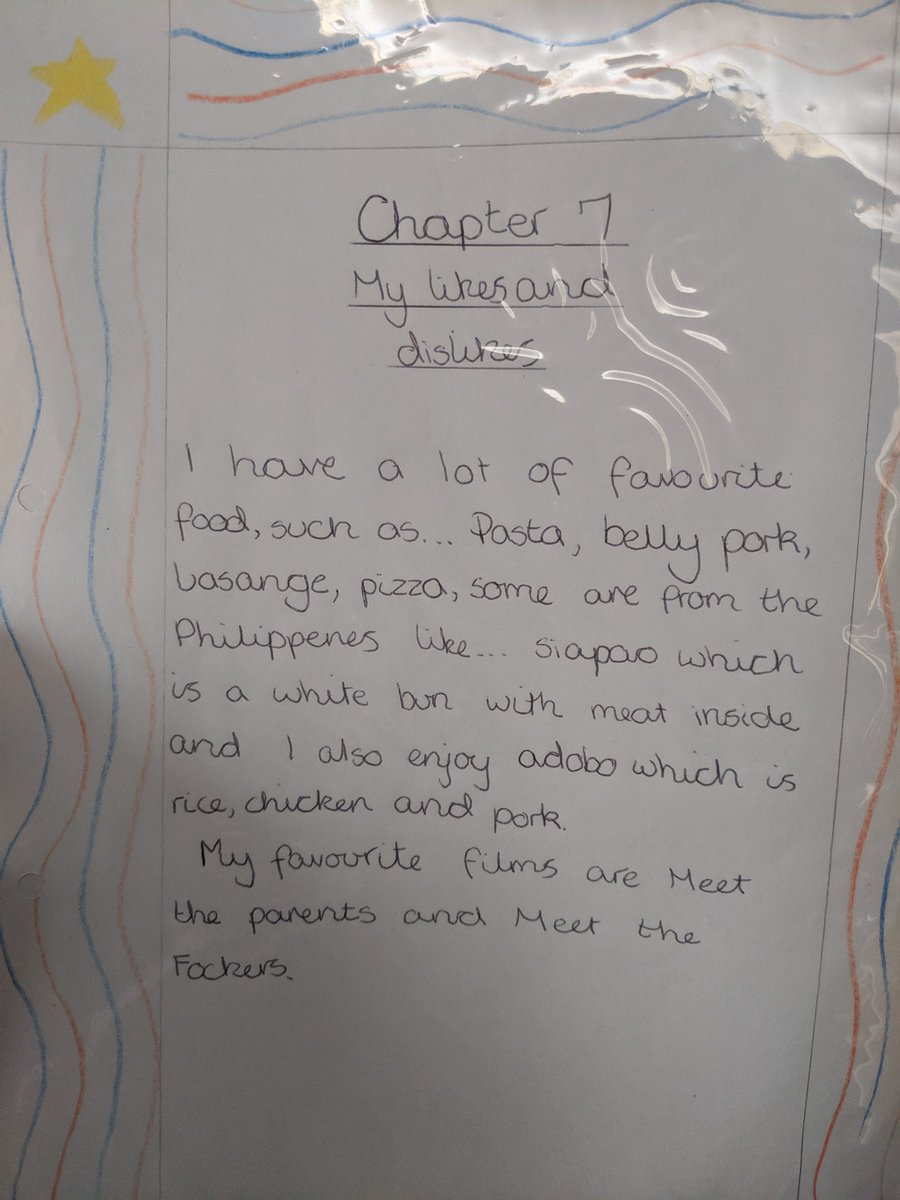 Chapter 7
My likes and
dislikes
I have a lot of favourite
food, such as... Pasta, belly pork,
Lasange, pizza, some are from the
Philippenes like... Siapao which
is a white bun with meat inside
and I also enjoy adobo which is
rice, chicken and pork.
My favourite films are Meet
the parents and Meet the
Fockers.